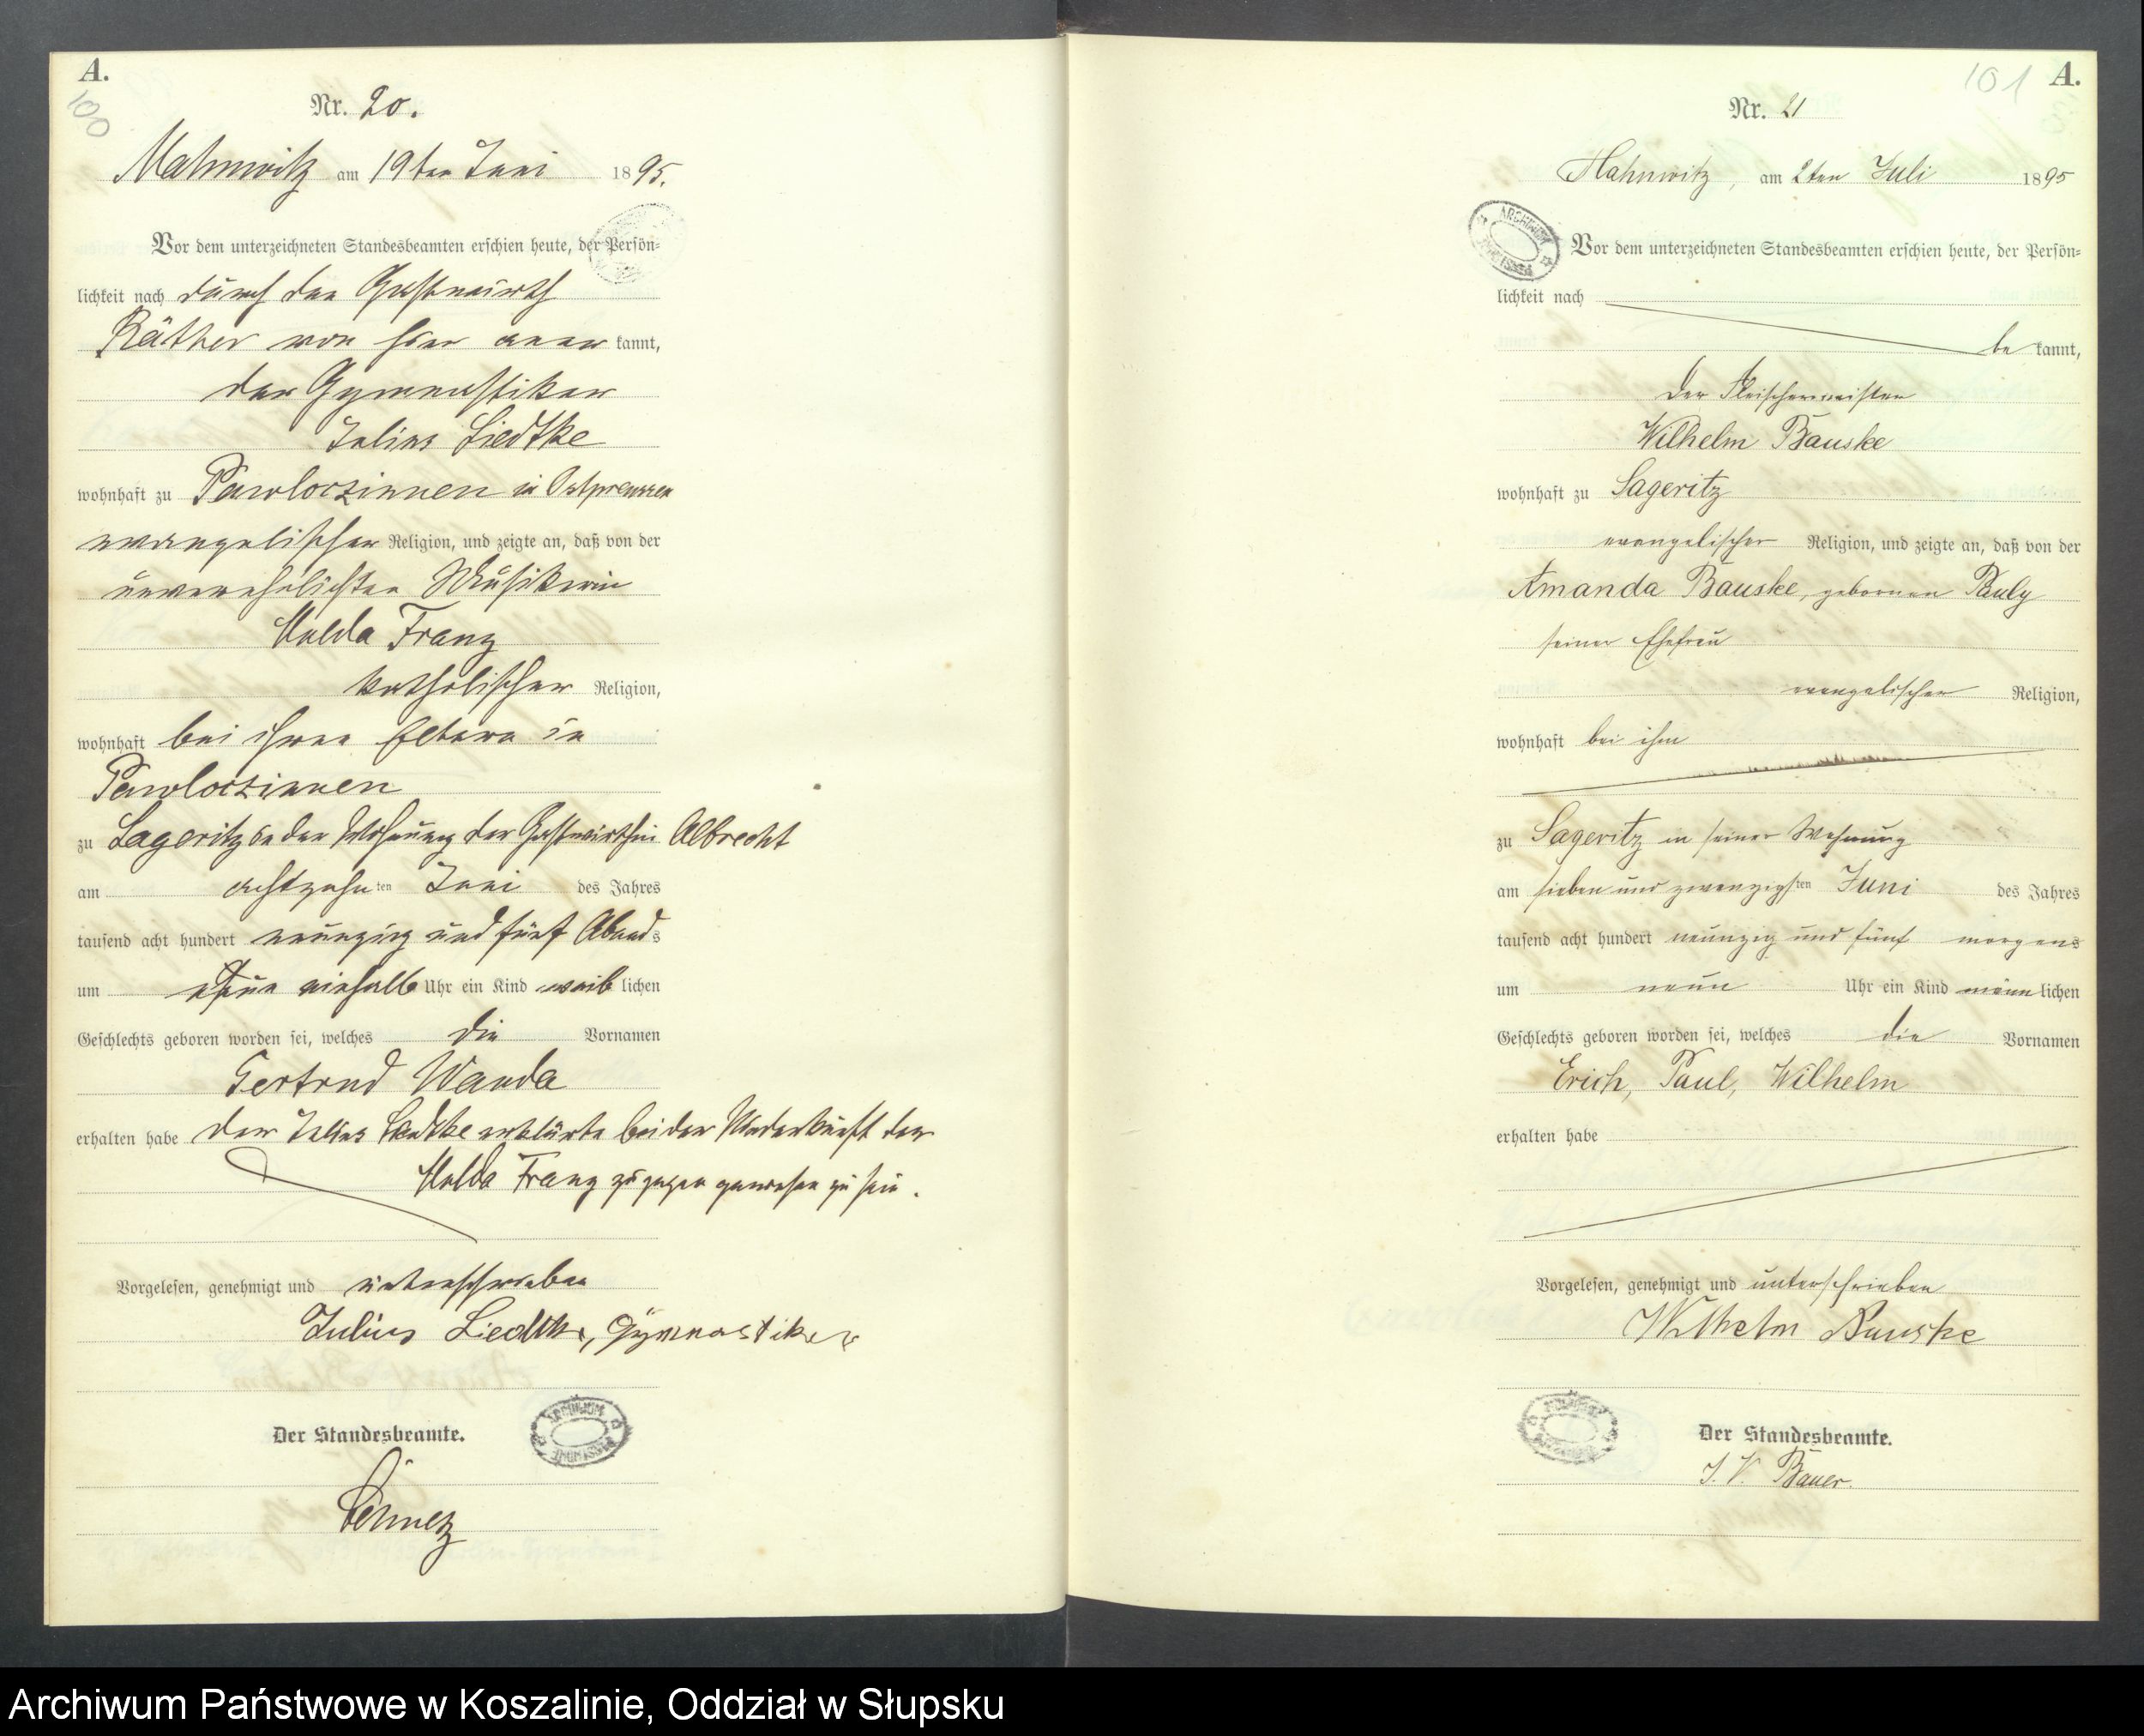 A.
100
Nr. 20.
Mahnwitz am 19ten Juni 1895.
Vor dem unterzeichneten Standesbeamten erschien heute, der Persön-
lichkeit nach durch den Gastwirth
Räther von hier aner kannt,
der Gymnastiker
Julius Liedtke
wohnhaft zu Pawloczinnen in Ostpreussen
evangelischer Religion, und zeigte an, daß von der
unverehelichten Musikerin
Hulda Franz
katholischer Religion,
wohnhaft bei ihren Eltern in
Pawloczinnen
zu Lageritz in der Wohnung der Gastwirthin Albrecht
am achtzehn ten Juni des Jahres
tausend acht hundert neunzig und fünf Abends
um einhalb Uhr ein Kind weib lichen
Geschlechts geboren worden sei, welches die Vornamen
Gertrud Wanda
erhalten habe der Julius Liedtke erklärte bei der Niederkunft der
Hulda Franz zugegen gewesen zu sein.
Vorgelesen, genehmigt und unterschrieben
Julius Liedtke, Gymnastiker
Der Standesbeamte.
A.
101
Nr. 21
Mahnwitz, am 2ten Juli 1895
Vor dem unterzeichneten Standesbeamten erschien heute, der Persön-
lichkeit nach
be kannt,
der Fleischermeister
Wilhelm Bauske
wohnhaft zu Sageritz
evangelischer Religion, und zeigte an, daß von der
Amanda Bauske, gebornen Pauly
seiner Ehefrau
evangelischer Religion,
wohnhaft bei ihm
zu Sageritz in seiner Wohnung
am sieben und zwanzigsten Juni des Jahres
tausend acht hundert neunzig und fünf morgens
um neun Uhr ein Kind männ lichen
Geschlechts geboren worden sei, welches die Vornamen
Erich, Paul, Wilhelm
erhalten habe
Vorgelesen, genehmigt und unterschrieben
Wilhelm Bauske
Der Standesbeamte.
J. V. Bauer.
Archiwum Państwowe w Koszalinie, Oddział w Słupsku